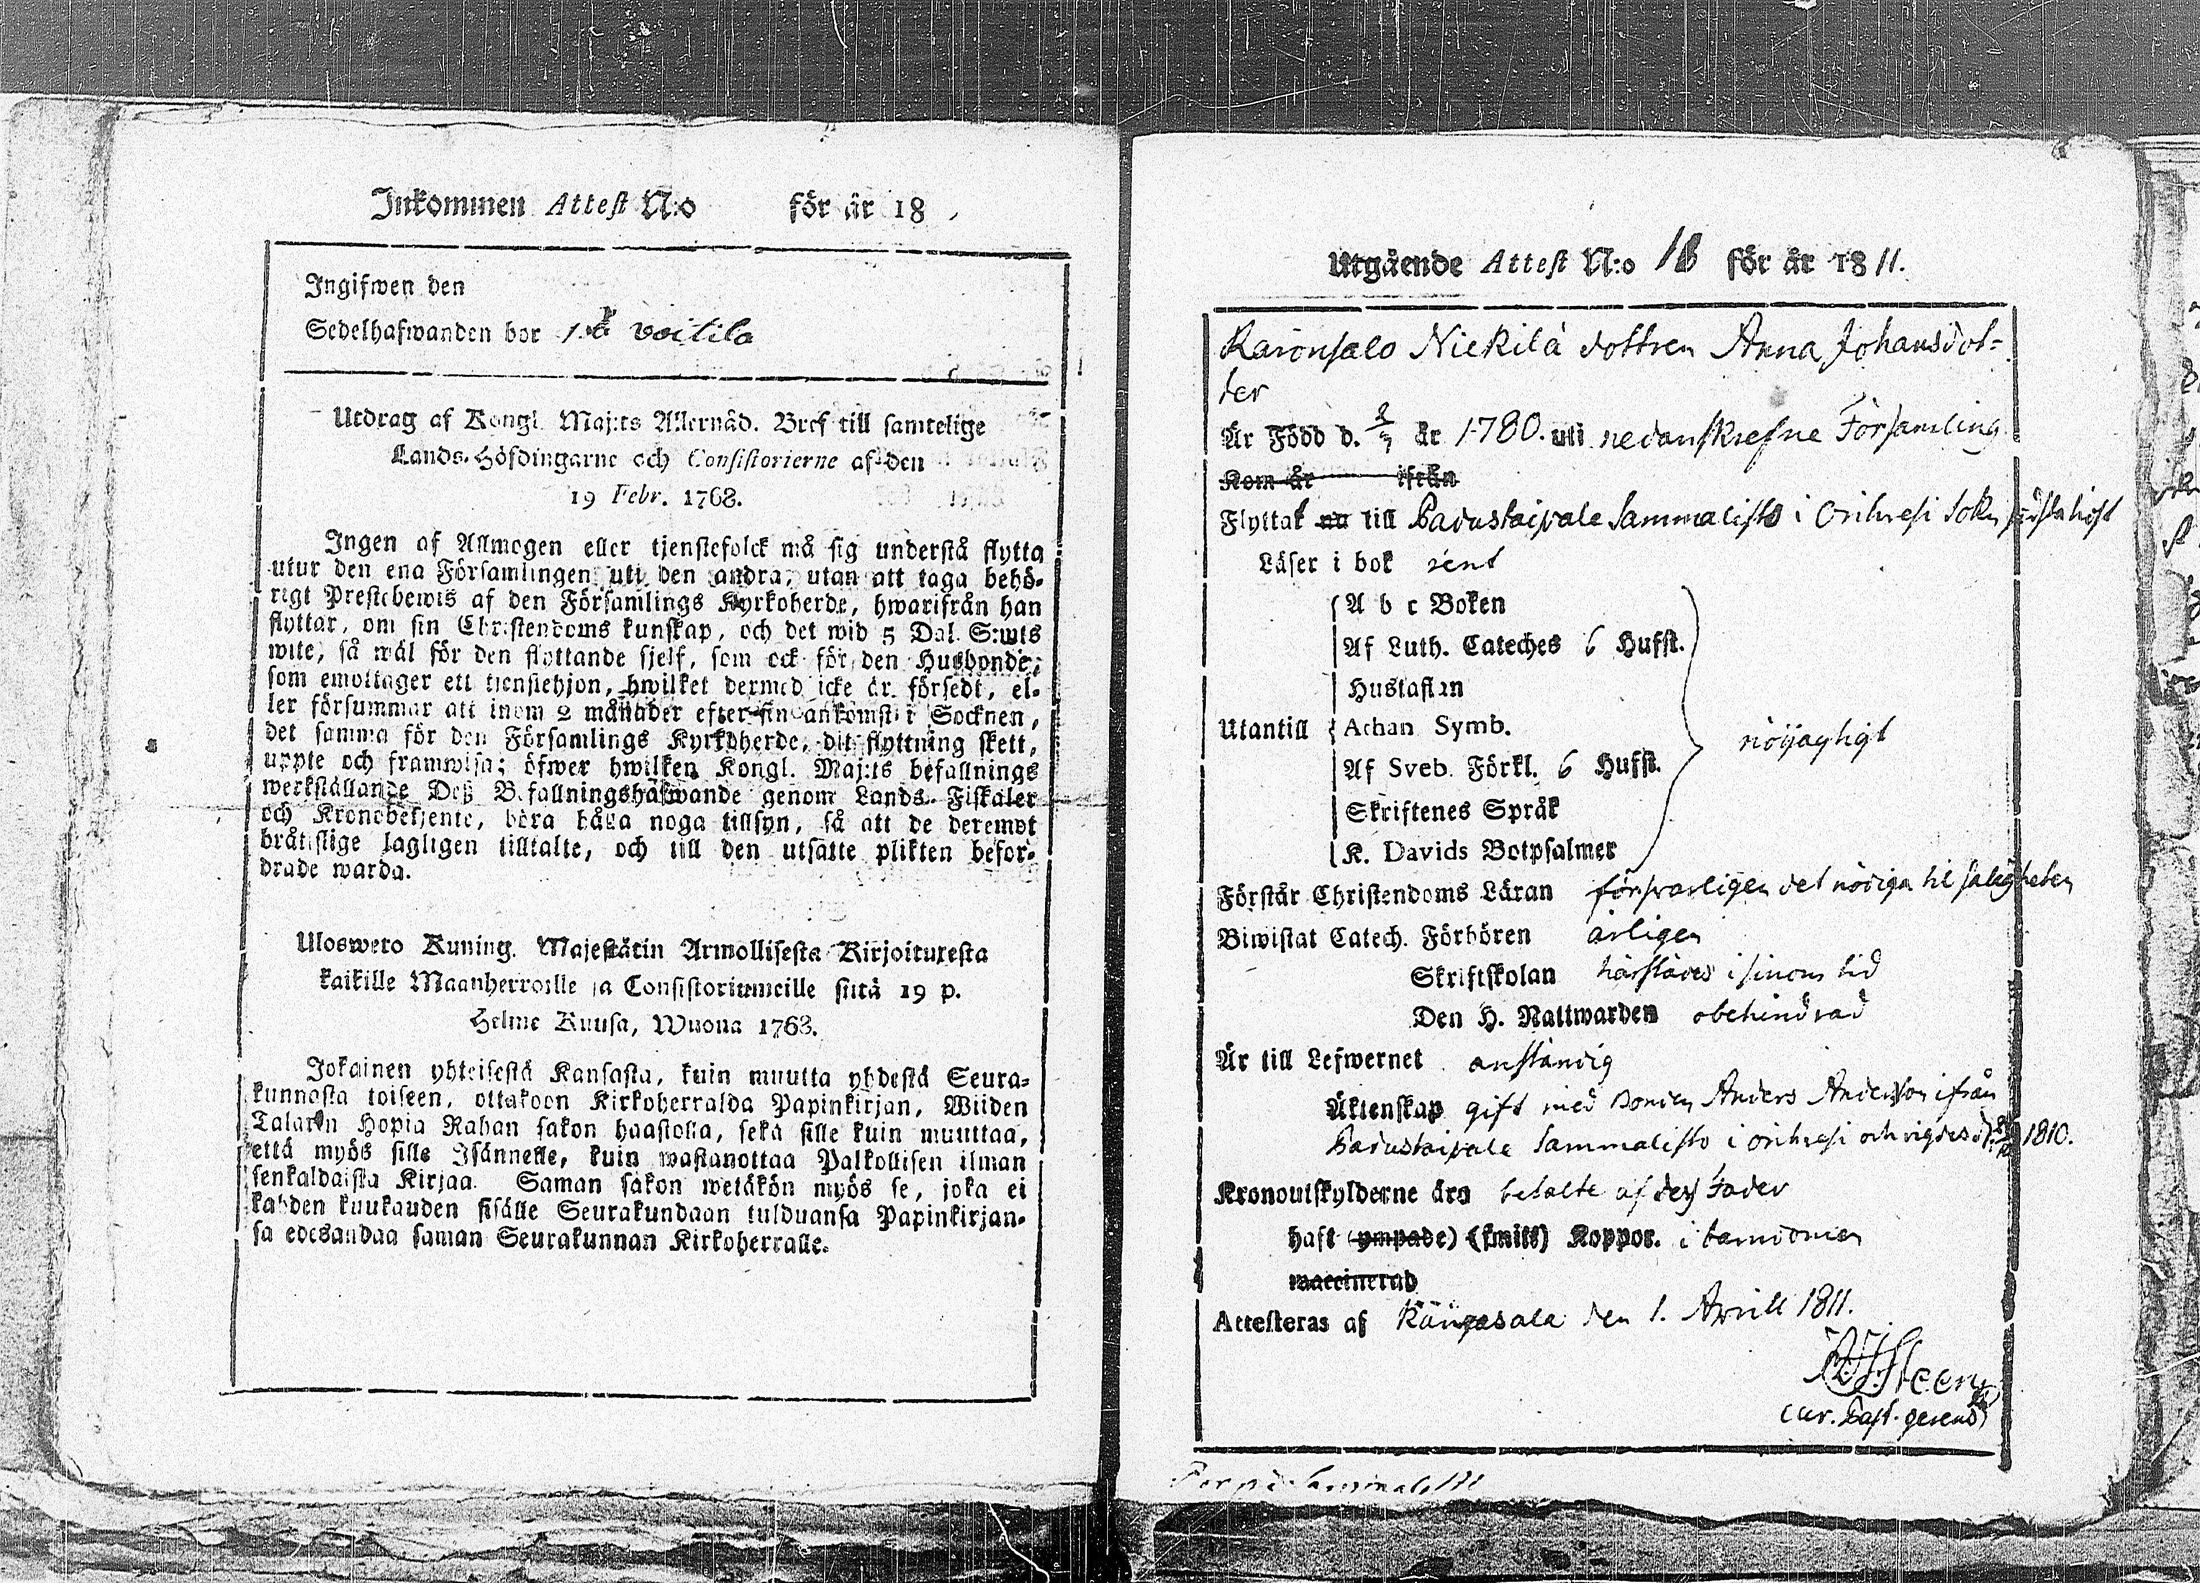 Inkommen Attest N:o för år 18
Ingifwen den
Sedelhafwanden bor voitila
Utdrag af Kongl. Maj:ts Allernåd. Bref till samtelige
Lands-Höfdingarne och Consistorierne af den
19 Febr. 1768.
Ingen af Allmogen eller tjenstefolck må sig understå flytta
utur den ena Församlingen uti den andra, utan att taga behö-
rigt Prestebewis af den Församlings Kyrkoherde, hwarifrån han
flyttar, om sin Christendoms kunskap, och det wid 5 Dal. S:mts
wite, så wäl för den flyttande sjelf, som ock för den Husbonde,
som emottager ett tjenstehjon, hwilket dermed icke är försedt, el-
ler försummar att inom 2 månader efter sin ankomst i Socknen,
det samma för den Församlings Kyrkoherde, dit flyttning skett,
uppte och framwisa; öfwer hwilken Kongl. Maj:ts befallnings
werkställande Deß Befallningshafwande genom Lands-Fiskaler
och Kronobetjente, böra hålla noga tillsyn, så att de deremot
bråtislige lagligen tilltalte, och till den utsatte plikten befor-
drade warda.
Ulosweto Kuning. Majestätin Armollisesta Kirjoituxesta
kaikille Maanherroille ja Consistoriumeille siitä 19 p.
Helme Kuusa, Wuona 1768.
Jokainen yhteisestä Kansasta, kuin muutta yhdestä Seura-
kunnasta toiseen, ottakoon Kirkoherralda Papinkirjan, Wiiden
Talarin Hopia Rahan sakon haastolla, sekä sille kuin muuttaa,
että myös sille Isännelle, kuin wastanottaa Palkollisen ilman
senkaldaista Kirjaa. Saman sakon wetäkön myös se, joka ei
kahden kuukauden sisälle Seurakundaan tulduansa Papinkirjan-
sa edesandaa saman Seurakunnan Kirkoherralle.
Utgående Attest N:o 18 för år 1811.
Nickilä dottren Anna Johansdot-
ter
Är Född d. 2/7 år 1780. uti nedanskrefne Församling
Kom år ifrån
Flyttat nu till Padustaipale Sammalisto i Orihvesi Sokn
Läser i bok rent
A b c Boken
Af Luth. Cateches 6 Hufst.
Hustaflan
Utantill Athan Symb.
nöijagligt
Af Sveb. Förkl. 6 Hufst.
Skriftenes Språk
K. Davids Botpsalmer
Förstår Christendoms Läran försvarligen det nödiga til saligheten
Biwistat Catech. Förhören årligen
Skriftskolan härstädes i sinom tid
Den H. Nattwarden obehindrad
Är till Lefwernet anständig
Äktenskap gift med Bonden Anders Andersson ifrån
Padustaipale Sammalisto i Orihvesi och vigdes d. 1810.
Kronoutskylderne äro betalte af dess Fader
haft (ympade) (smitt) Koppor. i barndomen
waccinerad
Attesteras af Kängasala den 1. Aprill 1811.
Steen
Cur. Past. gerens